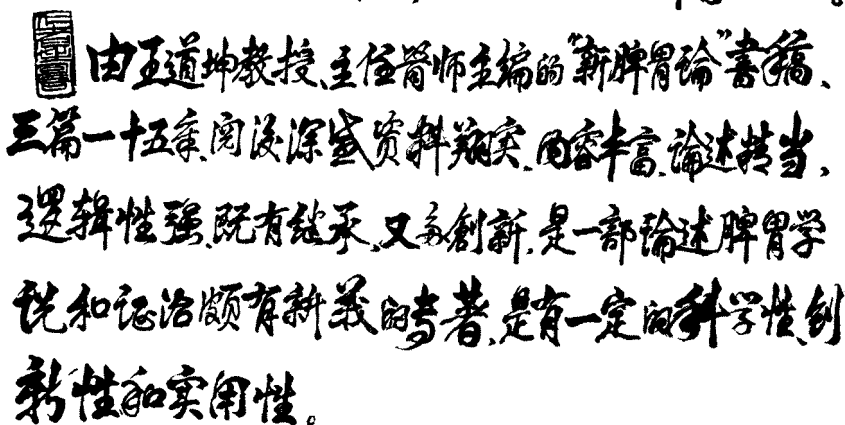 由王道坤教授、主任醫师主编的“新脾胃论”書稿、
三篇一十五章、阅後深感资料翔实、内容丰富、論述精当、
逻辑性强、既有继承、又有創新、是一部論述脾胃学
说和证治颇有新義的专著、是有一定的科学性、创
新性和实用性。